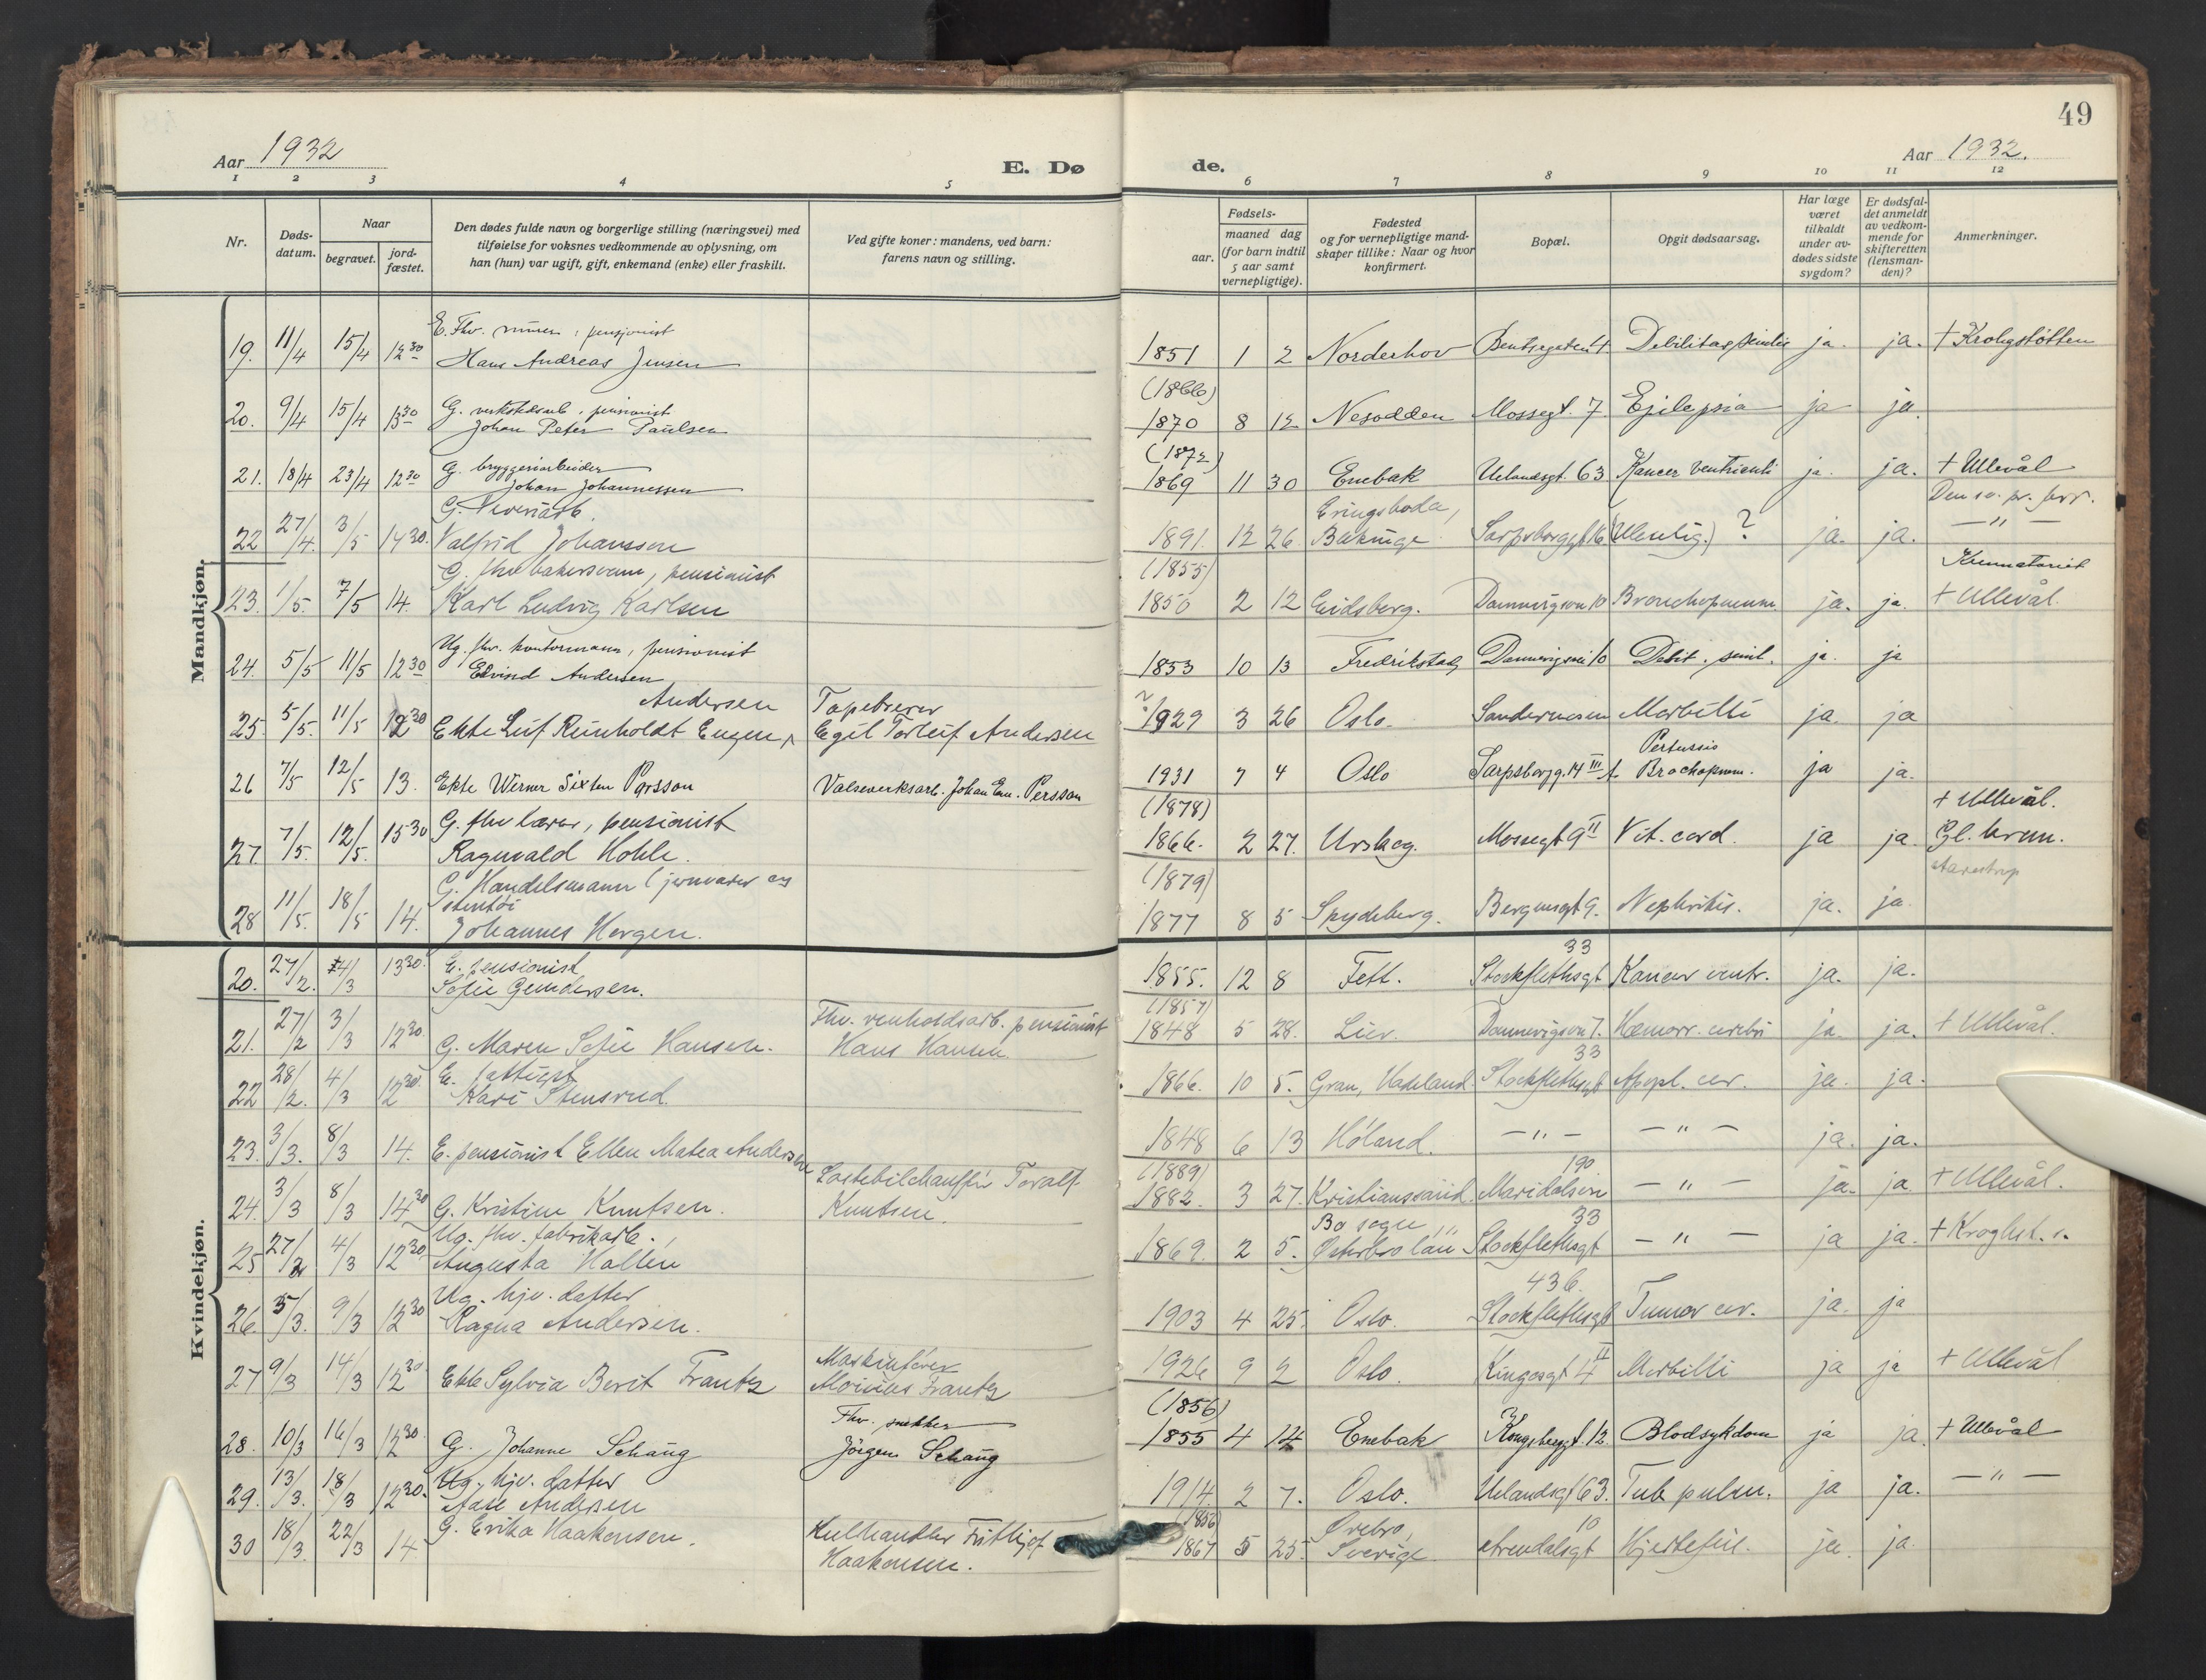 49
Aar 1932
E. Dø
de.
Aar 1932.
1 2 3 4 5 6 7 8 9 10 11 12
Nr.
Døds-
datum.
Naar
begravet.
jord-
fæstet.
Den dødes fulde navn og borgerlige stilling (næringsvei) med
tilføielse for voksnes vedkommende av oplysning, om
han (hun) var ugift, gift, enkemand (enke) eller fraskilt.
Ved gifte koner: mandens, ved barn:
farens navn og stilling.
Fødsels-
aar.
maaned dag
(for barn indtil
5 aar samt
vernepligtige).
Fødested
og for vernepligtige mand-
skaper tillike: Naar og hvor
konfirmert.
Bopæl.
Opgit dødsaarsag.
Har læge
været
tilkaldt
under av-
dødes sidste
sygdom?
Er dødsfal-
det anmeldt
av vedkom-
mende for
skifteretten
(lensman-
den)?
Anmerkninger.
Mandkjøn.
E. Fhv. murer, pensjonist
19. 11/4 15/4 12 30 Hans Andreas Jensen 1851 1 2 Norderhov Bentsegaten Debilitas senilis ja. ja. + Krohgstøtten
(1866)
G. verkstedsarb. pensionist
20. 9/4 15/4 13 30 Johan Peter Paulsen 1870 8 12 Nesodden Mossegt. 7 Epilepsia ja ja.
(1872)
G. bryggeriarbeider
21. 18/4 23/4 12 30 Johan Johannessen 1869 11 30 Enebak Uelandsgt. 63 Kancer ventriculi ja. ja. + Ullevål
G.
Eringsboda,
22 27/4. 3/5 14 30. Valfrid Johansson 1891. 12 26. Blekinge Sarpsborggt 16 (Uleselig.) ? ja. ja. — " —
(1855)
Krematoriet
G. fhv bakersvenn, pensionist
23. 1/5. 7/5 14. Karl Ludvig Karlsen 1850 2 12 Eidsberg. Dannevigsvn 10 Bronchopneum. ja. ja. + Ullevål.
Ug. fhv. kontormann, pensionist
24. 5/5 11/5 12 30 Edvind Andersen 1853 10 13 Fredrikstad Dannevigsvei 10 Debit. senil. ja. ja
Andersen Tapetserer
25. 5/5. 11/5 12 30 Ekte Leif Reinholdt Eugen, Egil Torleif Andersen 1929 3 26 Oslo. Sandermosen Morbilli ja. ja
Pertussis
26 7/5 12/5 13. Ekte Werner Sixten Persson Valseverksarb. Johan Em. Persson 1931 7 4 Oslo Sarpsborgg. 14 III Brochopnem. ja ja.
(1878) + Ullevål.
G. fhv lærer, pensionist
27. 7/5. 12/5. 15 30 Ragnvald Hohle. 1866. 2 27. Urskog. Mossegt 9 II Vit. cord. ja ja. Gl. krem.
(1879)
G. Handelsmann (jernvarer og
stentøi
28 11/5. 18/5 14. Johannes Horgen. 1877 8 5 Spydeberg. Bergensgt 9. Nephritis. ja. ja.
Kvindekjøn.
E. pensionist 33
20. 27/2. 4/3 13 30. Sofie Gundersen. 1855. 12 8 Fett. Stockflethsgt Kancer ventr. ja. ja.
(1857)
Fhv. renholdsarb. pensionist
21. 27/2 3/3 12 30. G. Maren Sofie Hansen. Hans Hansen. 1848 5 28. Lier. Dannevigsvn 7. Hæmorr. cerebri ja. ja. + Ullevål.
33
22 28/2. 4/3 12 30. Kari Stensrud. 1866. 10 5. Gran, Hadeland. Stockflethsgt Apopl. cer. ja. ja.
23. 3/3. 8/3 14. E. pensionist Ellen Matea Andersen 1848 6 13 Høland. — " — — " — ja. ja.
(1889) 190.
Lastebilchauffør Toralf
24. 3/3 8/3 14 30 G. Kristine Knutsen. Knutsen. 1882. 3 27. Kristianssand. Maridalsvn — " — ja. ja + Ullevål.
Ug. fhv. fabrikarb. Bo sogn 33
25 27/2 4/3 12 30 Augusta Hallén 1869. 2 5. Stockflethsgt — " — ja ja.
Ug. hjv. datter 43 b.
26. 5/3. 9/3 12 30 Ragna Andersen. 1903 4 25. Oslo. Stockflethsgt Tumor cer. ja. ja
Maskinfører
27 9/3 14/3 12 30 Ekte Sylvia Berit Frantz Frantz 1926 9 2 Oslo. Kingosgt 4 II Morbilli ja ja + Ullevål
(1856)
Fhv. snekker
28. 10/3 16/3 12 30. G. Johanne Schaug Jörgen Schaug 1855 4 14 Enebak Kongsberggt. 12 Blodsykdom ja ja. + Ullevål
Ug. hjv. datter
29. 13/3. 18/3 12 30. Aase Andersen 1914. 2 7. Oslo. Uelandsgt 63. Tub pulm. ja ja. — " —
(1856) Örebro, 10
30 18/3. 22/3 14 G. Erika Haakonsen. Kulhandler Fritjof 1867 5 25. Sverige. Arendalsgt Hjertefeil. ja. ja.
Haakonsen.